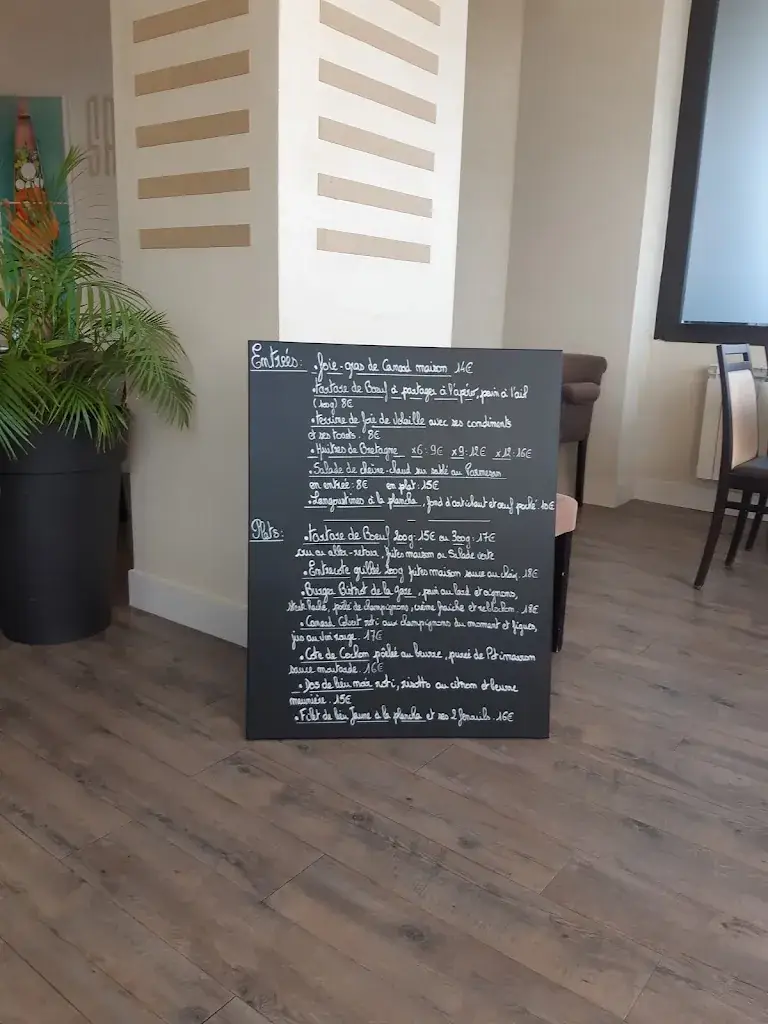 SA
Entrées: • Foie-gras de Canard maison 14€
• Tartare de Bœuf à partager à l'apéro, pain à l'ail
(100g) 8€
• Terrine de foie de Volaille avec ses condiments
et ses toasts. 8€
• Huîtres de Bretagne x6: 9€ x9: 12€ x12: 16€
• Salade de chèvre-chaud sur sablé au Parmesan
en entrée: 8€ en plat: 15€
• Langoustines à la plancha, fond d'artichaut et œuf poché 10€
Plats: • Tartare de Bœuf 200g: 15€ ou 300g: 17€
cru ou aller-retour, frites maison ou Salade verte
• Entrecote grillée 200g frites maison sauce au choix. 18€
• Burger Bistrot de la Gare, pain au lard et oignons,
steak haché, poêlée de champignons, crème fraiche et reblochon. 18€
• Canard Colvert roti aux champignons du moment et figues,
jus au vin rouge. 17€
• Cote de Cochon poêlée au beurre, purée de Potimarron
sauce moutarde. 16€
• Dos de lieu noir roti, risotto au citron et beurre
meunière. 15€
• Filet de lieu Jaune à la plancha et ses 2 fenouils. 16€